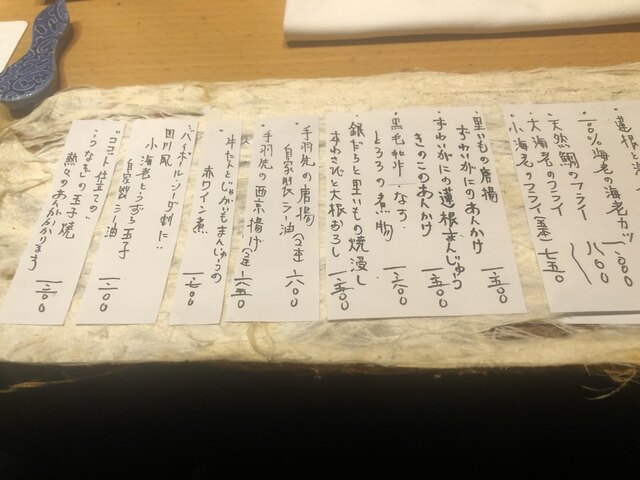 蓮根と海
一〇〇%海老の海老カツ 一、〇〇〇
天然鯛のフライ 八〇〇
大海老のフライ(一本)七五〇
小海老のフライ
・里いもの唐揚
ずわいがにのあんかけ 一、五〇〇
・ずわいがにの蓮根まんじゅう
きのこのあんかけ 一、五〇〇
・黒毛和牛、なす、
とろろの煮物 一、六〇〇
・銀だらと里いもの焼浸し
本わさびと大根おろし 一、五〇〇
・手羽先の唐揚
自家製ラー油(2本)六〇〇
手羽先の西京揚げ(2本)六五〇
・牛たんとじゃがいもまんじゅうの
赤ワイン煮 一、七〇〇
・ハイボール・ソーダ割に…
四川風
小海老とうずら玉子
自家製ラー油 一、二〇〇
・"ココット仕立ての"
うなぎの玉子焼
熱々のあんがかかります 一、三〇〇